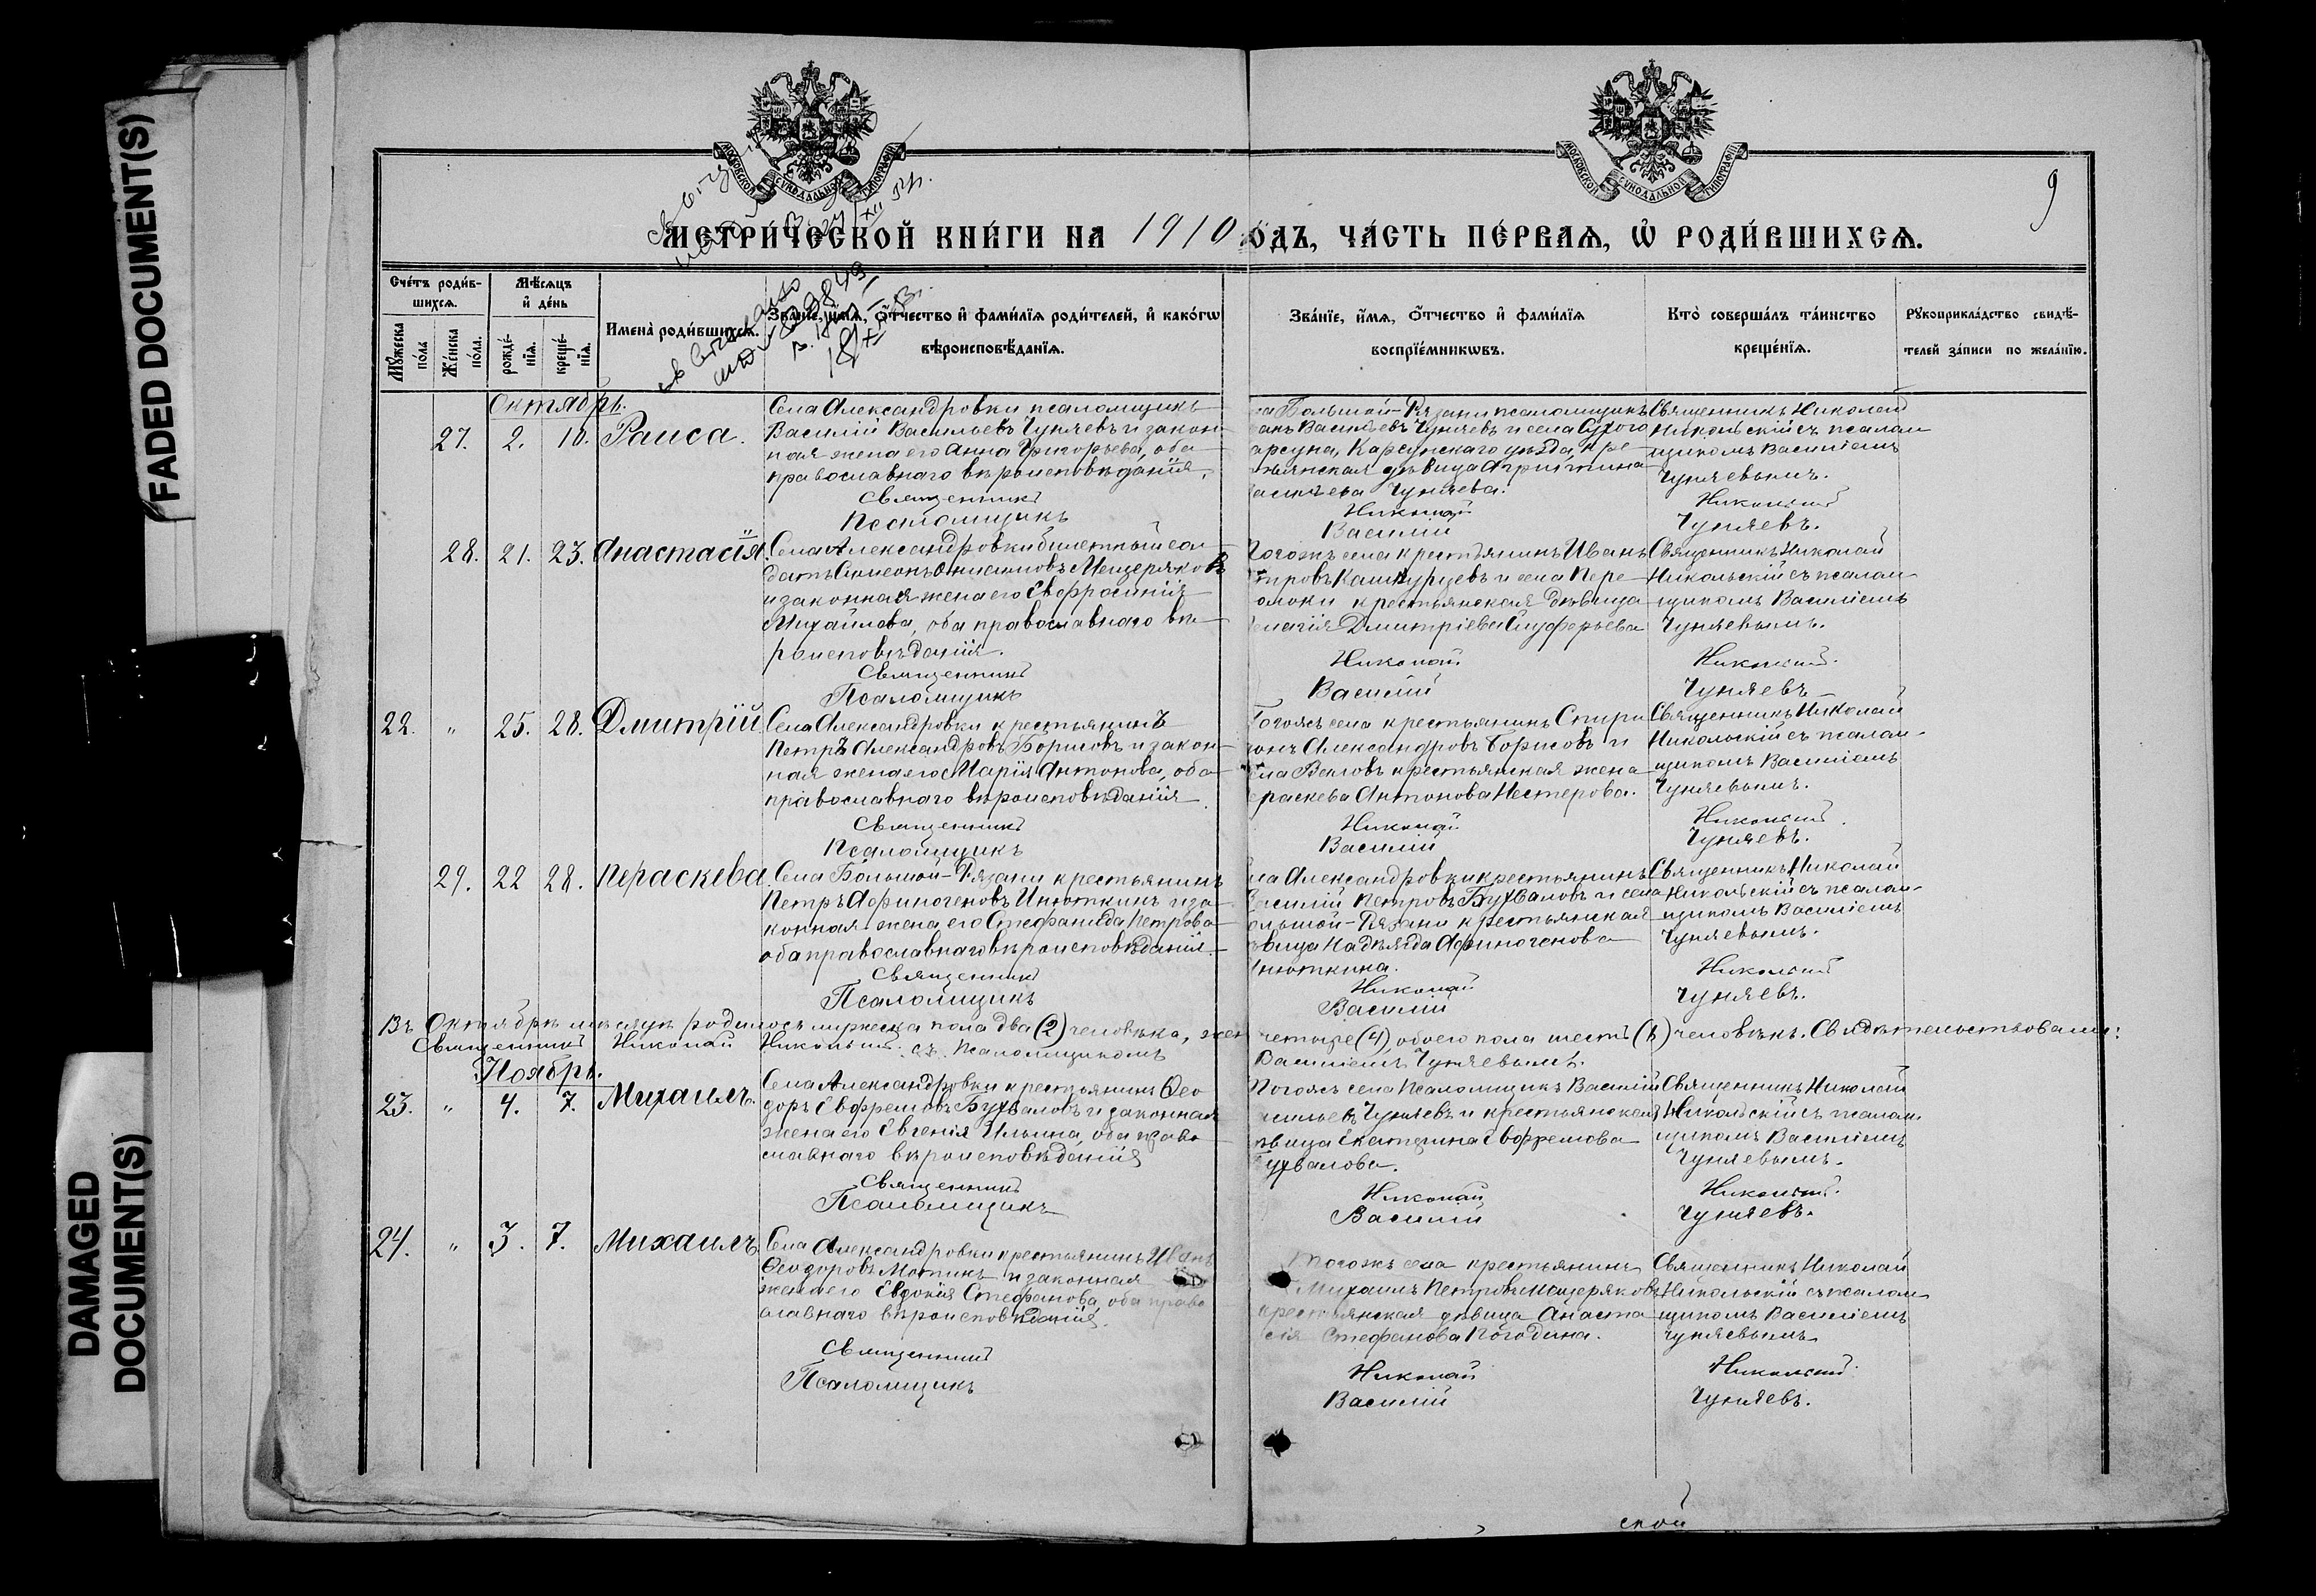 FADED DOCUMENT(S)
DAMAGED
DOCUMENT(S)
МОСКОВСКОЙ СѴНОДАЛЬНОЙ ТИПОГРАФІИ
МОСКОВСКОЙ СѴНОДАЛЬНОЙ ТИПОГРАФІИ
9
МЕТРИ́ЧЕСКОЙ КНИ́ГИ НА 1910 ОДЪ, ЧА́СТЬ ПЕ́РВАЯ, Ѽ РОДИ́ВШИХСЯ.
Сче́тъ роди́в-
шихся.
Мꙋжеска по́ла
Же́нска по́ла.
Мѣ́сяцъ
и҆ де́нь
рожде́-
нїѧ.
креще́-
нїѧ.
Имена̀ роди́вшихся.
Зва́нїе, и҆́мя, ѻ҆́тчество и҆ фами́лїя роди́телей, и҆ како́гѡ
вѣроисповѣ́данїя.
Зва́нїе, и҆́мя, ѻ҆́тчество и҆ фами́лїя
воспрїе́мникѡвъ.
Кто̀ соверша́лъ та́инство
креще́нїя.
Рꙋкоприкла́дство свидѣ́-
телей за́писи по жела́нїю.
Октябрь.
27. 2. 10. Раиса.
Села Александровки псаломщикъ
Василій Васильевъ Чуняевъ и закон-
ная жена его Анна Григорьева, оба
православнаго вѣроисповѣданія.
Священникъ
Псаломщикъ
Большой-Рязани псаломщикъ
Васильевъ Чуняевъ и села Сухого
арсуна, Карсунскаго уѣзда, кре-
стьянская дѣвица Агриппина
Чуняева.
Николай
Василій
Священникъ Николай
Никольскій съ псалом-
щикомъ Василіемъ
Чуняевымъ.
Никольскій
Чуняевъ.
28. 21. 23. Анастасія.
Села Александровки билетный сол-
датъ Симеонъ Онисимовъ Мещеряковъ
и законная жена его Евфросинія
Михайлова, оба православнаго вѣ-
роисповѣданія.
Священникъ
Псаломщикъ
Тогожъ села крестьянинъ Иванъ
и села Пере-
олоки крестьянская дѣвица
Дмитріева
Николай
Василій
Священникъ Николай
Никольскій съ псалом-
щикомъ Василіемъ
Чуняевымъ.
Никольскій.
Чуняевъ
22. " 25. 28. Дмитрій
Села Александровки крестьянинъ
Петръ Александровъ Борисовъ и закон-
ная жена его Марія Антонова, оба
православнаго вѣроисповѣданія.
Священникъ
Псаломщикъ
Тогожъ села крестьянинъ Спири
онъ Александровъ Борисовъ и
крестьянская жена
ераскева Антонова Нестерова.
Николай
Василій
Священникъ Николай
Никольскій съ псалом-
щикомъ Василіемъ
Чуняевымъ.
Никольскій.
Чуняевъ.
29. 22 28. Пераскева.
Села Большой-Рязани крестьянинъ
Петръ Афиногеновъ Инюткинъ и за-
конная жена его Стефанида Петрова
оба православнаго вѣроисповѣданія.
Священникъ
Псаломщикъ
ла Александровки крестьянинъ
асилій Петровъ Бухваловъ и села
ольшой-Рязани крестьянская
вица Надежда Афиногенова
нюткина.
Николай
Василій
Священникъ Николай
Никольскій съ псалом-
щикомъ Василіемъ
Чуняевымъ.
Никольскій
Чуняевъ.
Въ Октябрѣ мѣсяцѣ родилось мужеска пола два (2) человѣка, жен четыре (4), обоего пола шесть (6) человѣкъ. Свидѣтельствовали:
Священникъ Николай Никольскій съ Псаломщикомъ Василіемъ Чуняевымъ.
Ноябрь.
23. " 4. 7. Михаилъ.
Села Александровки крестьянинъ Ѳео
доръ Евфремовъ Бухваловъ и законная
жена его Евгенія Ильина, оба право
славнаго вѣроисповѣданія
Священникъ
Псаломщикъ
Тогожъ села Псаломщикъ Василій
асильевъ Чуняевъ и крестьянская
вица Екатерина Евфремова
Бухвалова.
Николай
Василій
Священникъ Николай
Никольскій съ псалом-
щикомъ Василіемъ
Чуняевымъ.
Никольскій.
Чуняевъ.
24. " 3. 7. Михаилъ.
Села Александровки крестьянинъ Иванъ
Ѳеодоровъ и законная
жена его Евдокія Стефанова, оба право
славнаго вѣроисповѣданія.
Священникъ
Псаломщикъ
Тогожъ села крестьянинъ
Михаилъ Петровъ Мещеряковъ
крестьянская дѣвица Анаста
сія Стефанова Погодина.
Николай
Василій
Священникъ Николай
Никольскій съ псалом
щикомъ Василіемъ
Чуняевымъ
Никольскій.
Чуняевъ.
ской